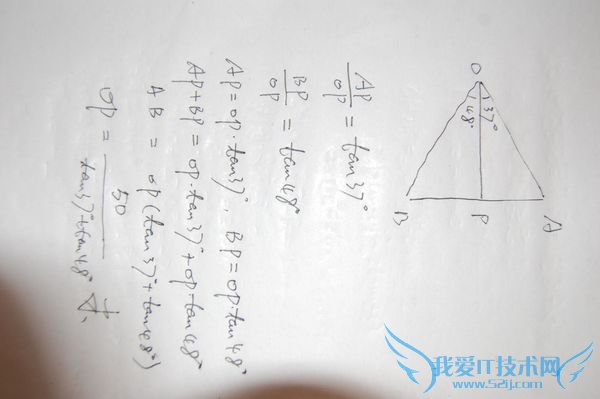 O
37°
48°
B
P
A
AP/OP = tan37°
BP/OP = tan48°
AP=OP·tan37°, BP=OP·tan48°
AP+BP=OP·tan37°+OP·tan48°
AB = OP(tan37°+tan48°)
OP = 50/(tan37°+tan48°)
我爱IT技术网
www.52ij.com